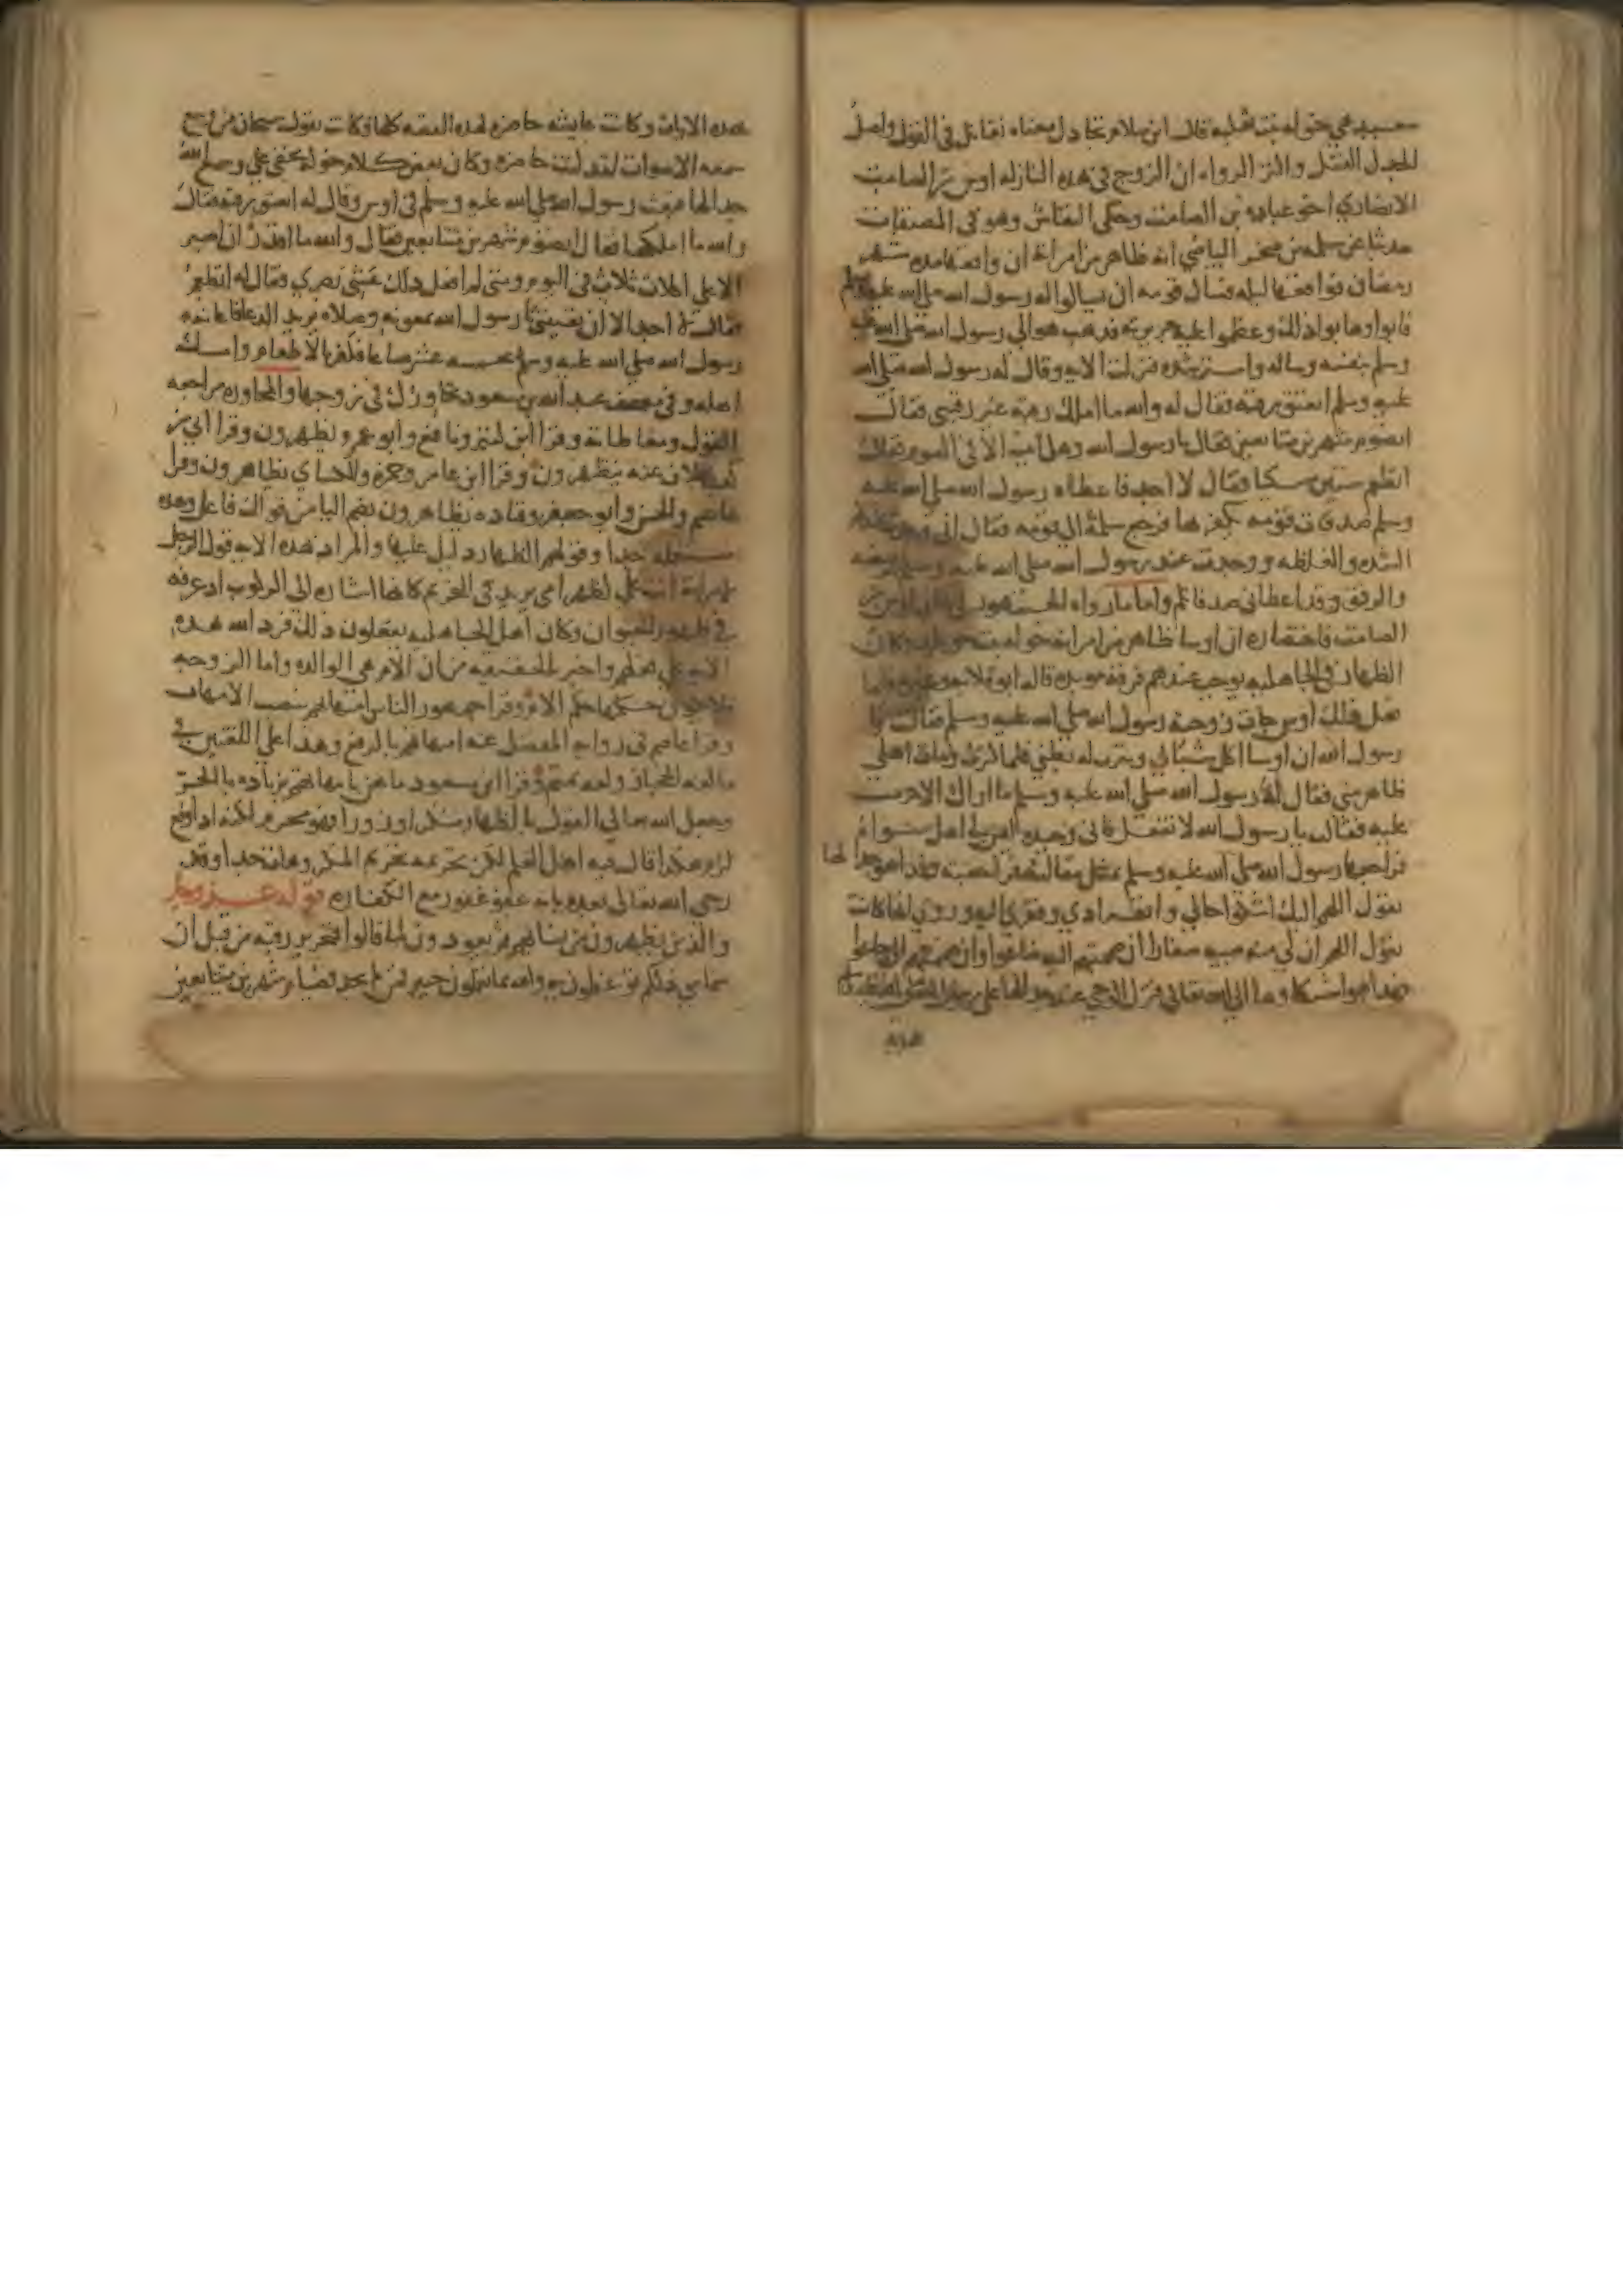 هي خوله بنت ثعلبه قال ابن سلام تجادل معناه تقاتل في القول واصل
الجدل الفتل واكثر الرواه ان الزوج في هذه النازله اوس بن الصامت
الانصاري اخو عباده بن الصامت وحكي النقاش وهو في المصنفات
حديثا عن سلمه بن صخر البياضي انه ظاهر من امراته ان واقعها مده شهر
رمضان فواقعها ليله فسال قومه ان يسالوا له رسول الله صلي الله عليه وسلم
فابوا وهابوا ذلك وعظموا عليه جريرته فذهب هو الي رسول الله صلي الله عليه
وسلم بنفسه وساله واسترشده فنزلت الايه وقال له رسول الله صلي الله
عليه وسلم اتعتق رقبه فقال له والله ما املك رقبه غير رقبتي فقال
اتصوم شهرين متتابعين فقال يا رسول الله وهل اتيت الا في الصوم فقال
اتطعم ستين مسكينا فقال لا اجد فاعطاه رسول الله صلي الله عليه
وسلم صدقات قومه يكفر بها فرجع سلمة الي قومه فقال اني وجدت عندكم
الشده والغلظه ووجدت عند رسول الله صلي الله عليه وسلم الرخصه
والرفق وقد اعطاني صدقاتكم واما ما رواه الجمهور في شان اوس بن
الصامت فاختصاره ان اوسا ظاهر من امراته خوله بنت خويلد وكان
الظهار في الجاهليه يوجب عندهم فرقة موبده قاله ابو قلابه وغيره فلما
فعل ذلك اوس جات زوجته رسول الله صلي الله عليه وسلم فقالت يا
رسول الله ان اوسا اكل شبابي ونثرت له بطني فلما كبرت ومات اهلي
ظاهر مني فقال لها رسول الله صلي الله عليه وسلم ما اراك الا حرمت
عليه فقالت يا رسول الله لا تفعل فاني وحيده ليس لي اهل سواه
فراجعها رسول الله صلي الله عليه وسلم بمثل مقالته فراجعته فهذا هو جدالها
تقول اللهم اليك اشكو حالي وانفرادي وفقري اليه وروي انها كانت
تقول اللهم ان لي منه صبيه صغارا ان ضممتهم اليه ضاعوا وان ضممتهم الي جاعوا
فهذا هو اشتكاوها الي الله تعالي فنزل الوحي عند جدالها علي رسول الله صلي الله عليه وسلم
بهذه
بهذه الايات وكانت عايشه حاضره لهذه القصه كلها وكانت تقول سبحان من وسع
سمعه الاصوات لقد كنت حاضره وكان بعض كلام خوله يخفي علي وسمع الله
جدالها فبعث رسول الله صلي الله عليه وسلم في اوس وقال له اتعتق رقبه فقال
والله ما املكها فقال اتصوم شهرين متتابعين فقال والله ما اقدر ان اصبر
الا علي اكلات ثلاث في اليوم ومتي لم افعل ذلك غشي بصري فقال له اتطعم
فقال لا اجد الا ان تعينني يا رسول الله بمعونه وصلاه يريد الدعا فاعانه
رسول الله صلي الله عليه وسلم بخمسه عشر صاعا فكفر بالاطعام وامسك
اهله وفي مصحف عبد الله بن مسعود تحاورك في زوجها والمحاوره مراجعه
القول ومعاطاته وقرا ابن كثير ونافع وابو عمرو يظهرون وقرا ابي بن
كعب بخلاف عنه يتظهرون وقرا ابن عامر وحمزه والكساي يظاهرون وقرا
عاصم والحسن وابو جعفر وقتاده يظاهرون بضم اليا من قولك فاعل وهذه
مستعمله جدا وقولهم الظهار دليل عليها والمراد بهذه الايه قول الرجل
لامراته انت علي كظهر امي يريد في التحريم كانها اشاره الي الركوب اذ عرفه
في ظهور الحيوان وكان اهل الجاهليه يفعلون ذلك فرد الله بهذه
الايه علي فعلهم واخبر بالحقيقه من ان الام هي الوالده واما الزوجه
فلا يكون حكمها حكم الام وقرا جمهور الناس امهاتهم بنصب الامهات
وقرا عاصم في روايه المفضل عنه امهاتهم بالرفع وهذا علي اللغتين في
ما لغه الحجاز ولغه تميم وقرا ابن مسعود ما هن بامهاتهم بزياده با الجر
وجعل الله تعالي القول بالظهار منكرا وزورا فهو محرم لكنه اذا وقع
لزم هكذا قال فيه اهل العلم لكن تحريمه تحريم المكروهات جدا وقد
رجي الله تعالي بعده بانه عفو غفور مع الكفاره قوله عز وجل
والذين يظهرون من نسايهم ثم يعودون لما قالوا فتحرير رقبه من قبل ان
يتماسا ذلكم توعظون به والله بما تعملون خبير فمن لم يجد فصيام شهرين متتابعين